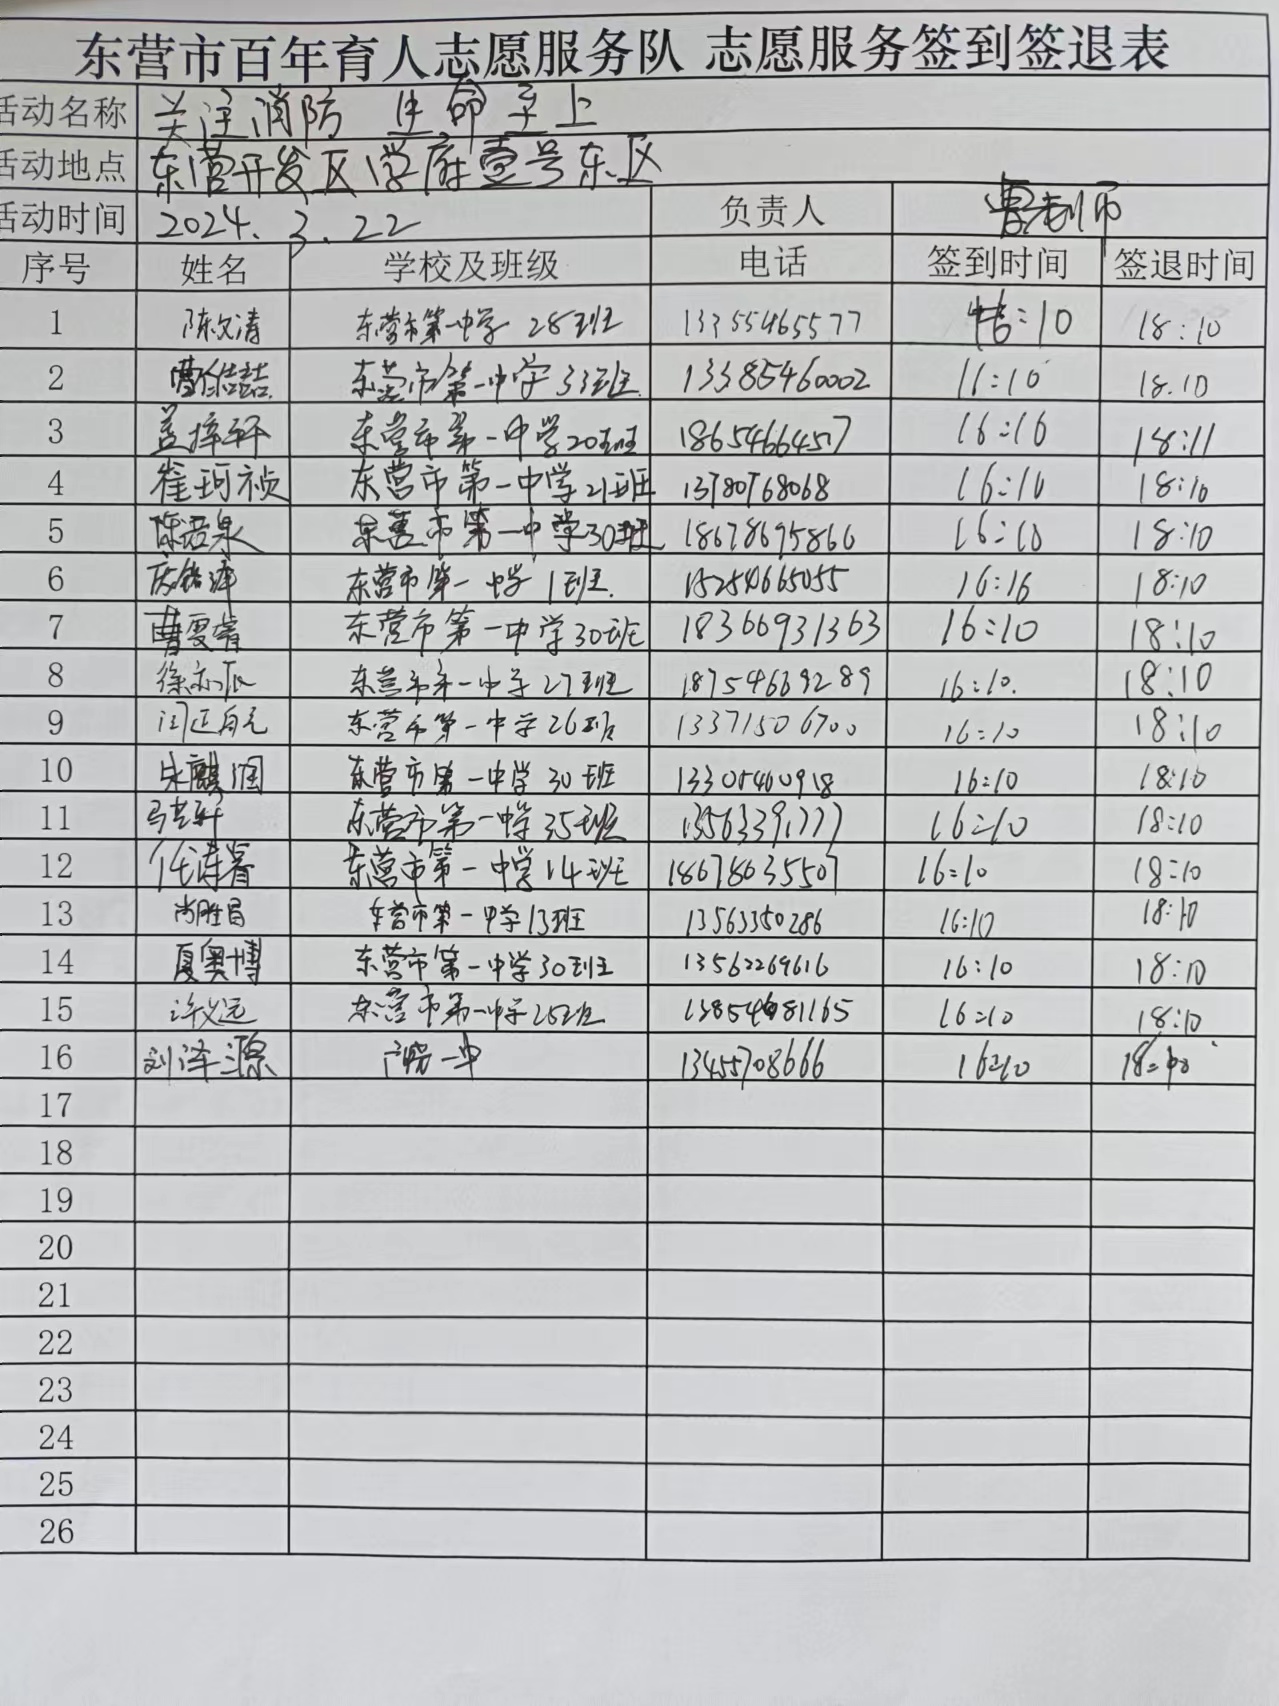 东营市百年育人志愿服务队 志愿服务签到签退表
活动名称 关注消防 生命至上
活动地点 东营开发区学府壹号东区
活动时间 2024.3.22 负责人 曹老师
序号 姓名 学校及班级 电话 签到时间 签退时间
1 陈文清 东营市第一中学 28班 13355465577 :10 18:10
2 东营市第一中学 33班 13385460002 16:10 18.10
3 盖梓轩 东营市第一中学20班 18654664507 16:16 18:11
4 崔珂祯 东营市第一中学21班 13780768068 16:10 18:10
5 东营市第一中学30班 18678695866 16:10 18:10
6 东营市第一中学 1班. 15254665055 16:16 18:10
7 曹雯睿 东营市第一中学30班 18366931363 16:10 18:10
8 东营市第一中学27班 18754669289 16:10. 18:10
9 东营市第一中学26班 13371506700 16:10 18:10
10 东营市第一中学30班 13305460918 16:10 18:10
11 东营市第一中学35班 13563391777 16:10 18:10
12 任涛睿 东营市第一中学14班 18678635507 16:10 18:10
13 尚胜昌 东营市第一中学13班 13563350286 16:10 18:10
14 夏奥博 东营市第一中学30班 13562269616 16:10 18:10
15 许义远 东营市第一中学25班 16:10 18:10
16 刘泽源 一中 13455708666 16:10 18:
17
18
19
20
21
22
23
24
25
26